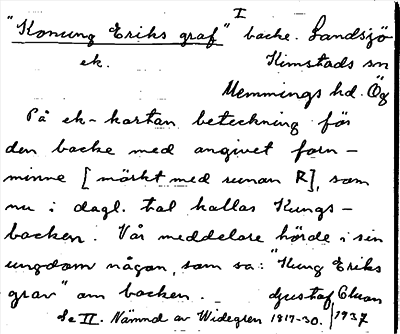 I
"Konung Eriks graf" backe. Landsjö
ek. Kimstads sn
Memmings hd. Ög
På ek-kartan beteckning för
den backe med angivet forn-
minne [märkt med runan R], som
nu i dagl. tal kallas Kungs-
backen. Vår meddelare hörde i sin
ungdom någon, som sa: "Kung Eriks
grav" om backen. Gustaf Ekman
Se II. Nämnd av Widegren 1817-30. 1937